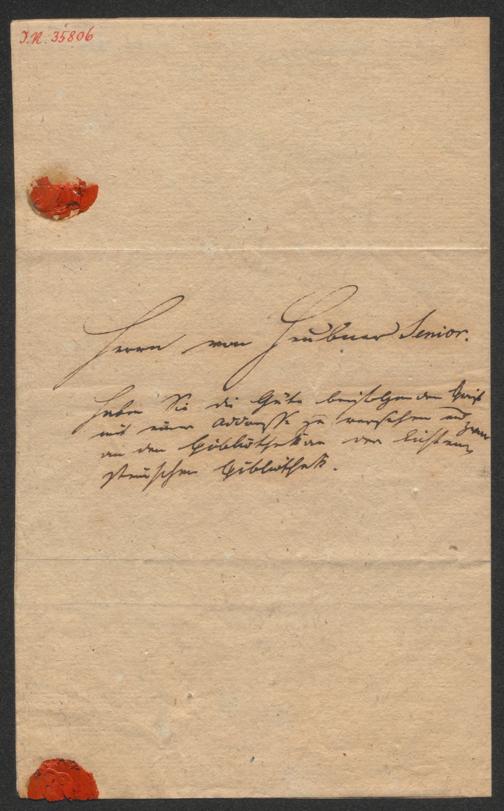 I.N. 35806
Herrn von Heubner Senior.
Haben Sie die Güte beifolgenden Brief
mit einer Addresse zu versehen und zwar
an den Bibliothekar der Lichten
steinschen Bibliothek.